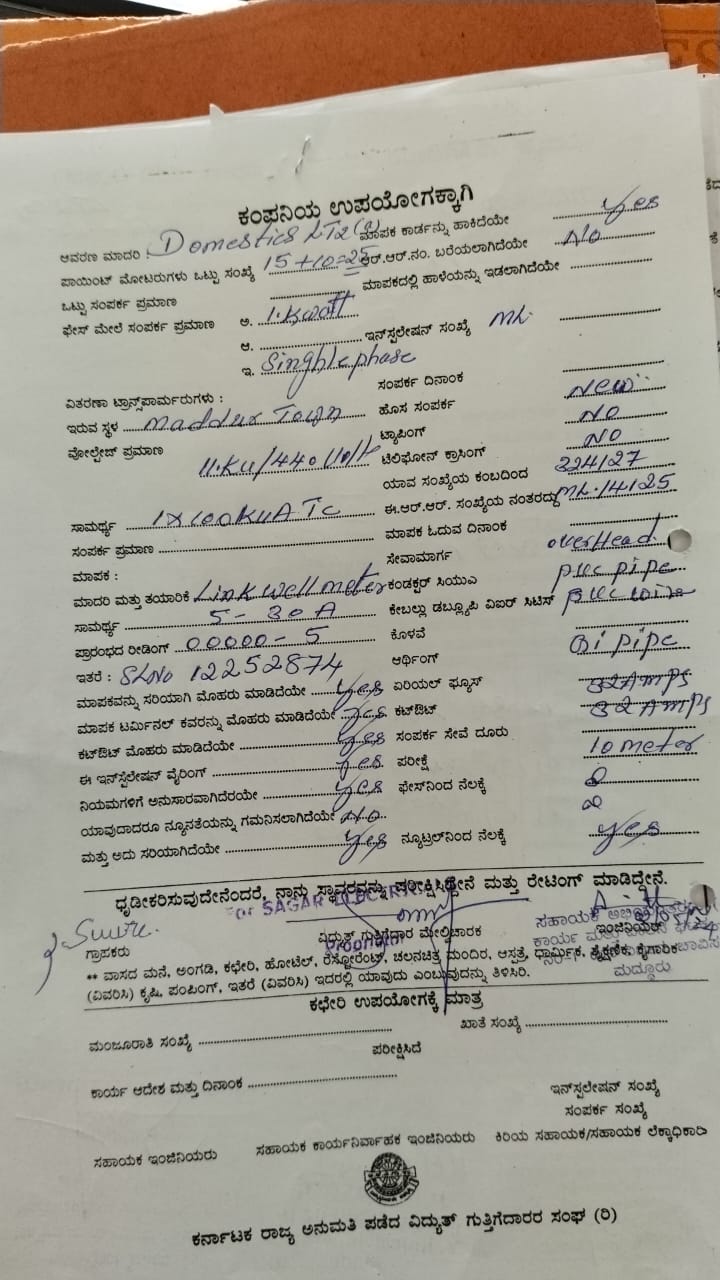 ಕಂಪನಿಯ ಉಪಯೋಗಕ್ಕಾಗಿ
ಆವರಣ ಮಾದರಿ : Domestics LT2(a) ಮಾಪಕ ಕಾರ್ಡನ್ನು ಹಾಕಿದೆಯೇ Yes
ಪಾಯಿಂಟ್ ಮೋಟರುಗಳು ಒಟ್ಟು ಸಂಖ್ಯೆ 15+10=25 ಆರ್.ಆರ್.ನಂ. ಬರೆಯಲಾಗಿದೆಯೇ No
ಒಟ್ಟು ಸಂಪರ್ಕ ಪ್ರಮಾಣ ಮಾಪಕದಲ್ಲಿ ಹಾಳೆಯನ್ನು ಇಡಲಾಗಿದೆಯೇ
ಫೇಸ್ ಮೇಲೆ ಸಂಪರ್ಕ ಪ್ರಮಾಣ ಅ. 1.Kwatt
ಆ. ಇನ್‌ಸ್ಟಲೇಷನ್ ಸಂಖ್ಯೆ ML.
ಇ. Singhlephase
ಸಂಪರ್ಕ ದಿನಾಂಕ
ವಿತರಣಾ ಟ್ರಾನ್ಸ್‌ಪಾರ್ಮರುಗಳು :
ಇರುವ ಸ್ಥಳ maddur Town ಹೊಸ ಸಂಪರ್ಕ New
ವೋಲ್ಟೇಜ್ ಪ್ರಮಾಣ 11.KU/440 Volt ಟ್ಯಾಪಿಂಗ್ NO
ಟೆಲಿಫೋನ್ ಕ್ರಾಸಿಂಗ್ NO
ಯಾವ ಸಂಖ್ಯೆಯ ಕಂಬದಿಂದ 224/27
ಸಾಮರ್ಥ್ಯ 1X100KUA TC ಈ.ಆರ್.ಆರ್. ಸಂಖ್ಯೆಯ ನಂತರದ್ದು ML.14125
ಸಂಪರ್ಕ ಪ್ರಮಾಣ ಮಾಪಕ ಓದುವ ದಿನಾಂಕ
ಮಾಪಕ : ಸೇವಾಮಾರ್ಗ overHead
ಮಾದರಿ ಮತ್ತು ತಯಾರಿಕೆ Linkwell meter ಕಂಡಕ್ಟರ್ ಸಿಯುಎ puc pipe
ಸಾಮರ್ಥ್ಯ 5-30A ಕೇಬಲ್ಲು ಡಬ್ಲ್ಯೂಪಿ ವಿಐರ್ ಸಿಟಿಸ್ puc wire
ಪ್ರಾರಂಭದ ರೀಡಿಂಗ್ 00000-5 ಕೊಳವೆ
ಇತರೆ : SLNo 12252874 ಆರ್ಥಿಂಗ್ Gi pipe
ಮಾಪಕವನ್ನು ಸರಿಯಾಗಿ ಮೊಹರು ಮಾಡಿದೆಯೇ yes ಏರಿಯಲ್ ಫ್ಯೂಸ್ 32Amps
ಮಾಪಕ ಟರ್ಮಿನಲ್ ಕವರನ್ನು ಮೊಹರು ಮಾಡಿದೆಯೇ yes ಕಟ್‌ಔಟ್ 32Amps
ಕಟ್‌ಔಟ್ ಮೊಹರು ಮಾಡಿದೆಯೇ yes ಸಂಪರ್ಕ ಸೇವೆ ದೂರು 10 meter
ಈ ಇನ್‌ಸ್ಟೆಲೇಷನ್ ವೈರಿಂಗ್ yes ಪರೀಕ್ಷೆ
ನಿಯಮಗಳಿಗೆ ಅನುಸಾರವಾಗಿದೆರಯೇ yes ಫೇಸ್‌ನಿಂದ ನೆಲಕ್ಕೆ
ಯಾವುದಾದರೂ ನ್ಯೂನತೆಯನ್ನು ಗಮನಿಸಲಾಗಿದೆಯೇ No
ಮತ್ತು ಅದು ಸರಿಯಾಗಿದೆಯೇ yes ನ್ಯೂಟ್ರಲ್‌ನಿಂದ ನೆಲಕ್ಕೆ yes
ಧೃಡೀಕರಿಸುವುದೇನೆಂದರೆ, ನಾನು ಸ್ಥಾವರವನ್ನು ಪರೀಕ್ಷಿಸಿದ್ದೇನೆ ಮತ್ತು ರೇಟಿಂಗ್ ಮಾಡಿದ್ದೇನೆ.
For SAGAR
ಗ್ರಾಹಕರು ವಿದ್ಯುತ್ ಗುತ್ತಿಗೆದಾರ ಮೇಲ್ವಿಚಾರಕ ಸಹಾಯಕ ಇಂಜಿನಿಯರ್
** ವಾಸದ ಮನೆ, ಅಂಗಡಿ, ಕಛೇರಿ, ಹೋಟೆಲ್, ರೆಸ್ಟೋರೆಂಟ್, ಚಲನಚಿತ್ರ ಮಂದಿರ, ಆಸ್ಪತ್ರೆ, ಧಾರ್ಮಿಕ, ಶೈಕ್ಷಣಿಕ, ಕೈಗಾರಿಕ
(ವಿವರಿಸಿ) ಕೃಷಿ, ಪಂಪಿಂಗ್, ಇತರೆ (ವಿವರಿಸಿ) ಇದರಲ್ಲಿ ಯಾವುದು ಎಂಬುವುದನ್ನು ತಿಳಿಸಿರಿ. ಮದ್ದೂರು
ಕಛೇರಿ ಉಪಯೋಗಕ್ಕೆ ಮಾತ್ರ
ಮಂಜೂರಾತಿ ಸಂಖ್ಯೆ ಖಾತೆ ಸಂಖ್ಯೆ
ಪರೀಕ್ಷಿಸಿದೆ
ಕಾರ್ಯ ಆದೇಶ ಮತ್ತು ದಿನಾಂಕ
ಇನ್‌ಸ್ಪಲೇಷನ್ ಸಂಖ್ಯೆ
ಸಂಪರ್ಕ ಸಂಖ್ಯೆ
ಸಹಾಯಕ ಇಂಜಿನಿಯರು ಸಹಾಯಕ ಕಾರ್ಯನಿರ್ವಾಹಕ ಇಂಜಿನಿಯರು ಕಿರಿಯ ಸಹಾಯಕ/ಸಹಾಯಕ ಲೆಕ್ಕಾಧಿಕಾರಿ
ಕರ್ನಾಟಕ ರಾಜ್ಯ ಅನುಮತಿ ಪಡೆದ ವಿದ್ಯುತ್ ಗುತ್ತಿಗೆದಾರರ ಸಂಘ (ರಿ)